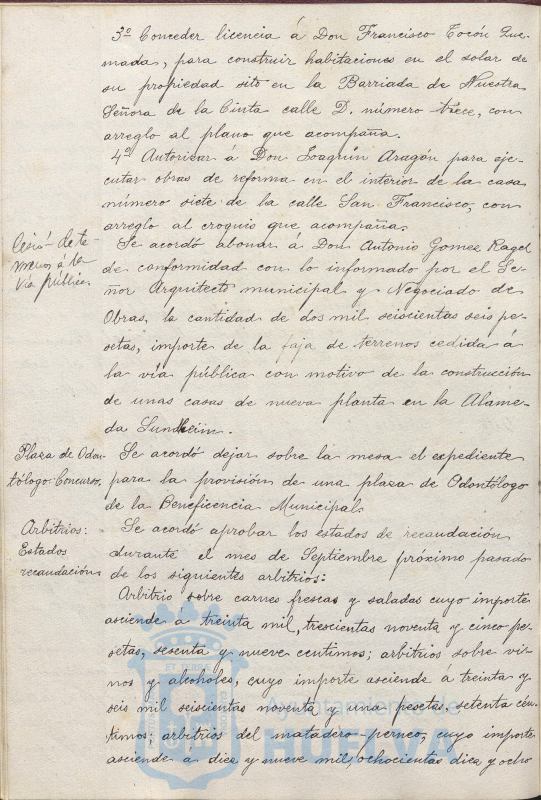 3º Conceder licencia á Don Francisco Tocón Que-
mada, para construir habitaciones en el solar de
su propiedad sito en la Barriada de Nuestra
Señora de la Cinta calle D. número trece, con
arreglo al plano que acompaña.
4º Autorizar á Don Joaquín Aragón para eje-
cutar obras de reforma en el interior de la casa
número siete de la calle San Francisco, con
arreglo al croquis que acompaña.
Cesión de te-
rrenos á la
vía pública.
Se acordó abonar a Don Antonio Gomez Ragel
de conformidad con lo informado por el Se-
ñor Arquitecto municipal y Negociado de
Obras, la cantidad de dos mil seiscientas seis pe-
setas, importe de la faja de terrenos cedida á
la vía pública con motivo de la construcción
de unas casas de nueva planta en la Alame-
da Sundheim.
Plaza de Odon-
tólogo: Concurso.
Se acordó dejar sobre la mesa el expediente
para la provisión de una plaza de Odontólogo
de la Beneficencia Municipal.
Arbitrios:
Estados
recaudación.
Se acordó aprobar los estados de recaudación
durante el mes de Septiembre próximo pasado
de los siguientes arbitrios:
Arbitrio sobre carnes frescas y saladas cuyo importe
asciende a treinta mil, trescientas noventa y cinco pe-
setas, sesenta y nueve centimos; arbitrios sobre vi-
nos y alcoholes, cuyo importe asciende á treinta y
seis mil seiscientas noventa y una pesetas setenta cén-
timos; arbitrios del matadero perneo, cuyo importe
asciende á diez y nueve mil, ochocientas diez y ocho
Ayuntamiento de
HUELVA